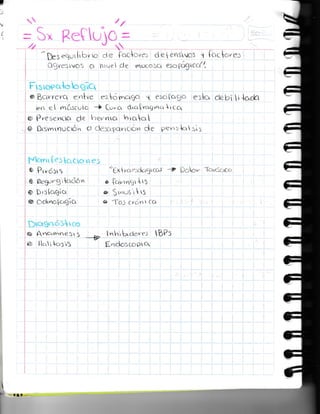 = Sx Reflujo =
"Desequilibrio de factores defensivos y factores
agresivos a nivel de mucosa esofágica".
Fisiopatología
Barrera entre estómago y esófago esta debilitada
en el músculo → Cura diafragmática
Presencia de hernia hiatal
Disminución o desaparición de peristalsis
Manifestaciones
Pirosis "Extraesofágicas" → Dolor Torácico
Regurgitación Faringitis
Disfagia Sinusitis
Odinofagia Tos crónica
Diagnóstico
Anamnesis → Inhibidores IBPs
Halitosis Endoscopia